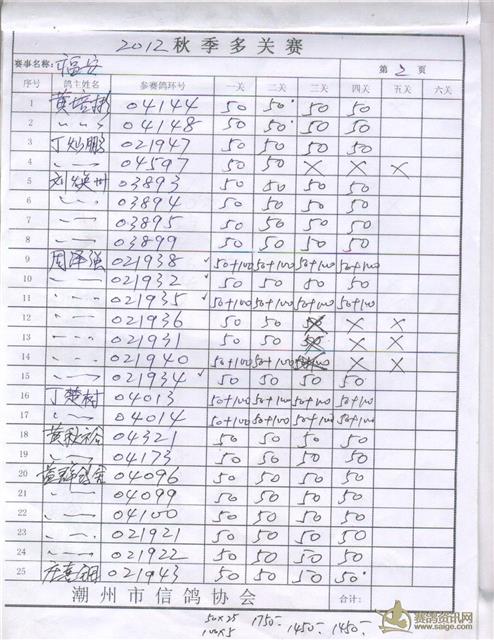 2012 秋季多关赛
赛事名称: 福安 第 2 页
序号 鸽主姓名 参赛鸽环号 一关 二关 三关 四关 五关 六关
1 黄培彬 04144 50 50 50 50
2 〃 〃 04148 50 50 50 50
3 丁灿鹏 021947 50 50 50 50
4 〃 〃 04597 50 50 × × ×
5 刘焕州 03893 50 50 50 50
6 〃 〃 03894 50 50 50 50
7 〃 〃 03895 50 50 50 50
8 〃 〃 03899 50 50 50 50
9 周泽强 021938 ✓ 50+100 50+100 50+100 50+100
10 〃 〃 021932 ✓ 50 50 50 50
11 〃 〃 021935 ✓ 50+100 50+100 50+100 50+100
12 〃 〃 021936 50 50 50 × ×
13 〃 〃 021931 50 50 50 × ×
14 〃 〃 021940 50+100 50+100 50+100 × ×
15 〃 〃 021934 ✓ 50 50 50 50
16 丁楚树 04013 50+100 50+100 50+100 50+100
17 〃 〃 04014 50+100 50+100 50+100 50+100
18 黄 04321 50 50 50 50
19 〃 〃 04173 50 50 50 50
20 黄 04096 50 50 50 50
21 〃 〃 04099 50 50 50 50
22 〃 〃 04100 50 50 50 50
23 〃 〃 021921 50 50 50 50
24 〃 〃 021922 50 50 50 50
25 021943 50 50 50 50
潮州市信鸽协会 合计:
50×25 1750- 1450- 1450-
100×5
赛鸽资讯网
www.saige.com